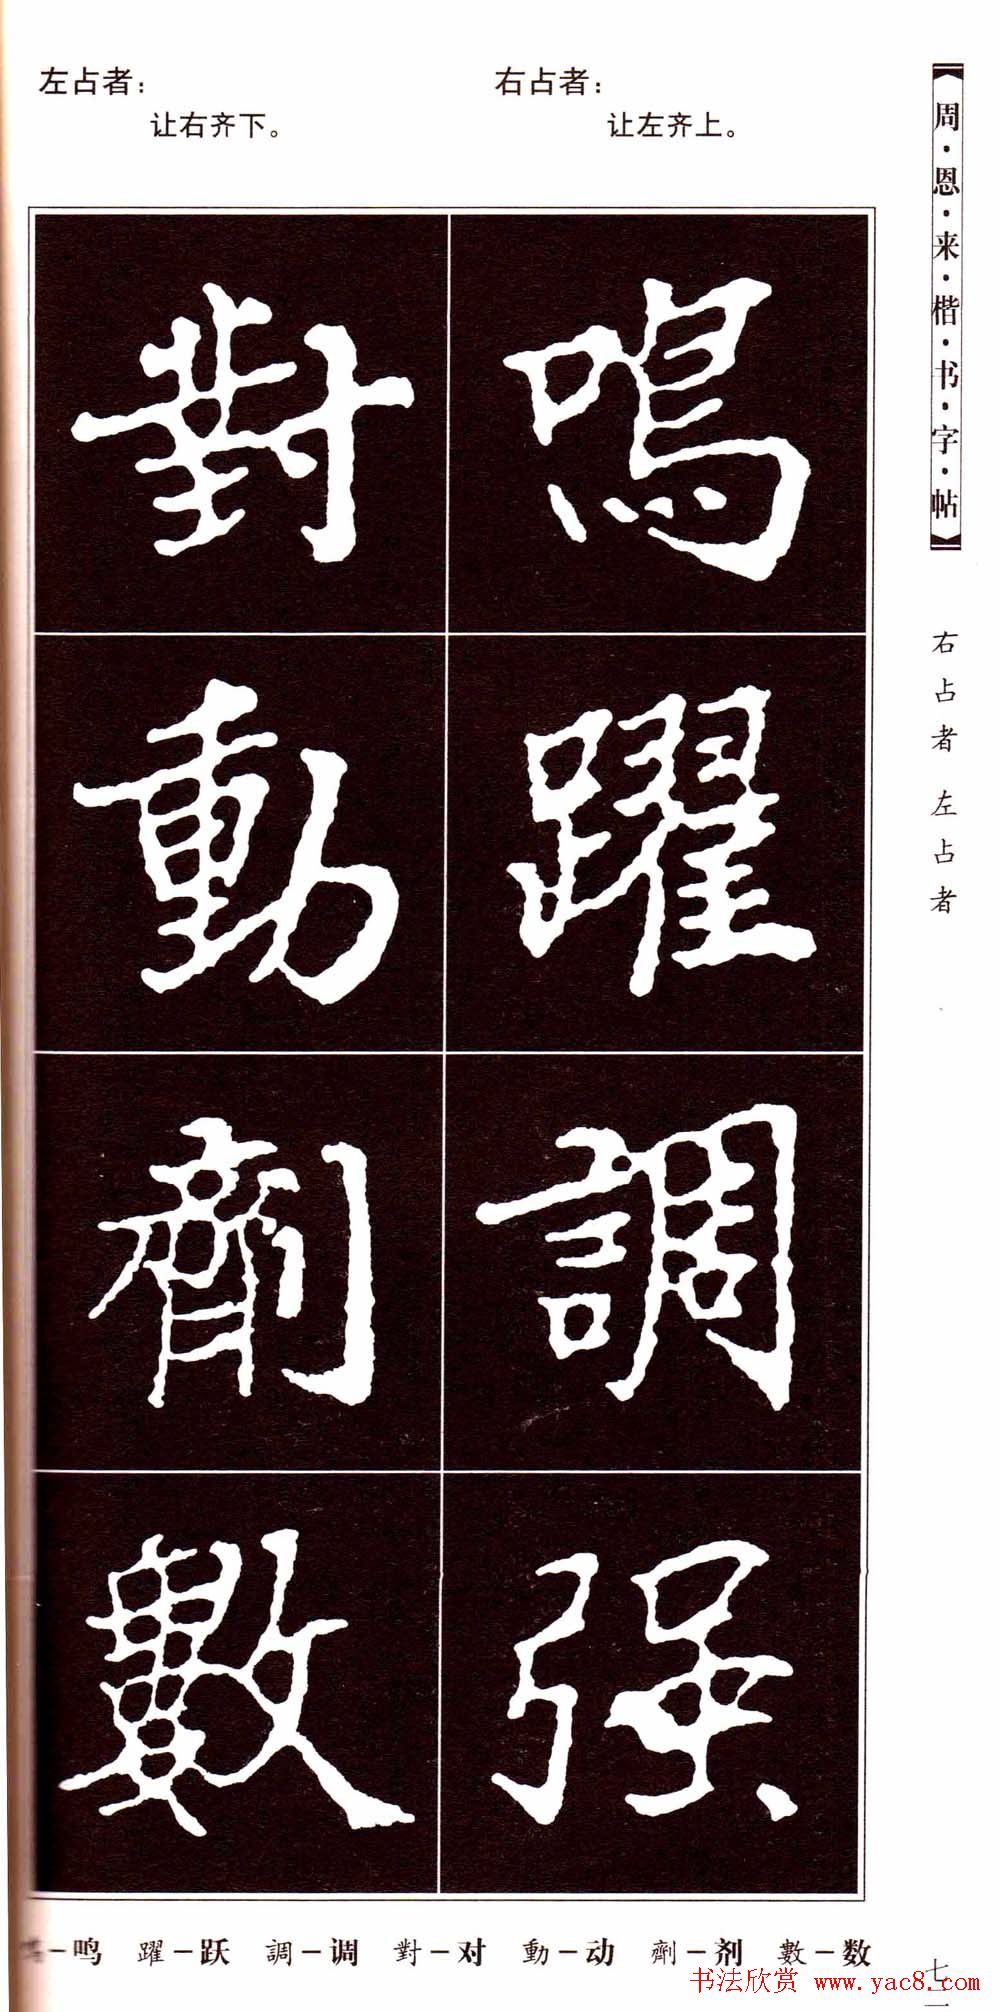 左占者：
让右齐下。
右占者：
让左齐上。
周·恩·来·楷·书·字·帖
右占者 左占者
鳴躍調强
對動劑數
－鸣 躍－跃 調－调 對－对 動－动 劑－剂 數－数
书法欣赏 www.yac8.com